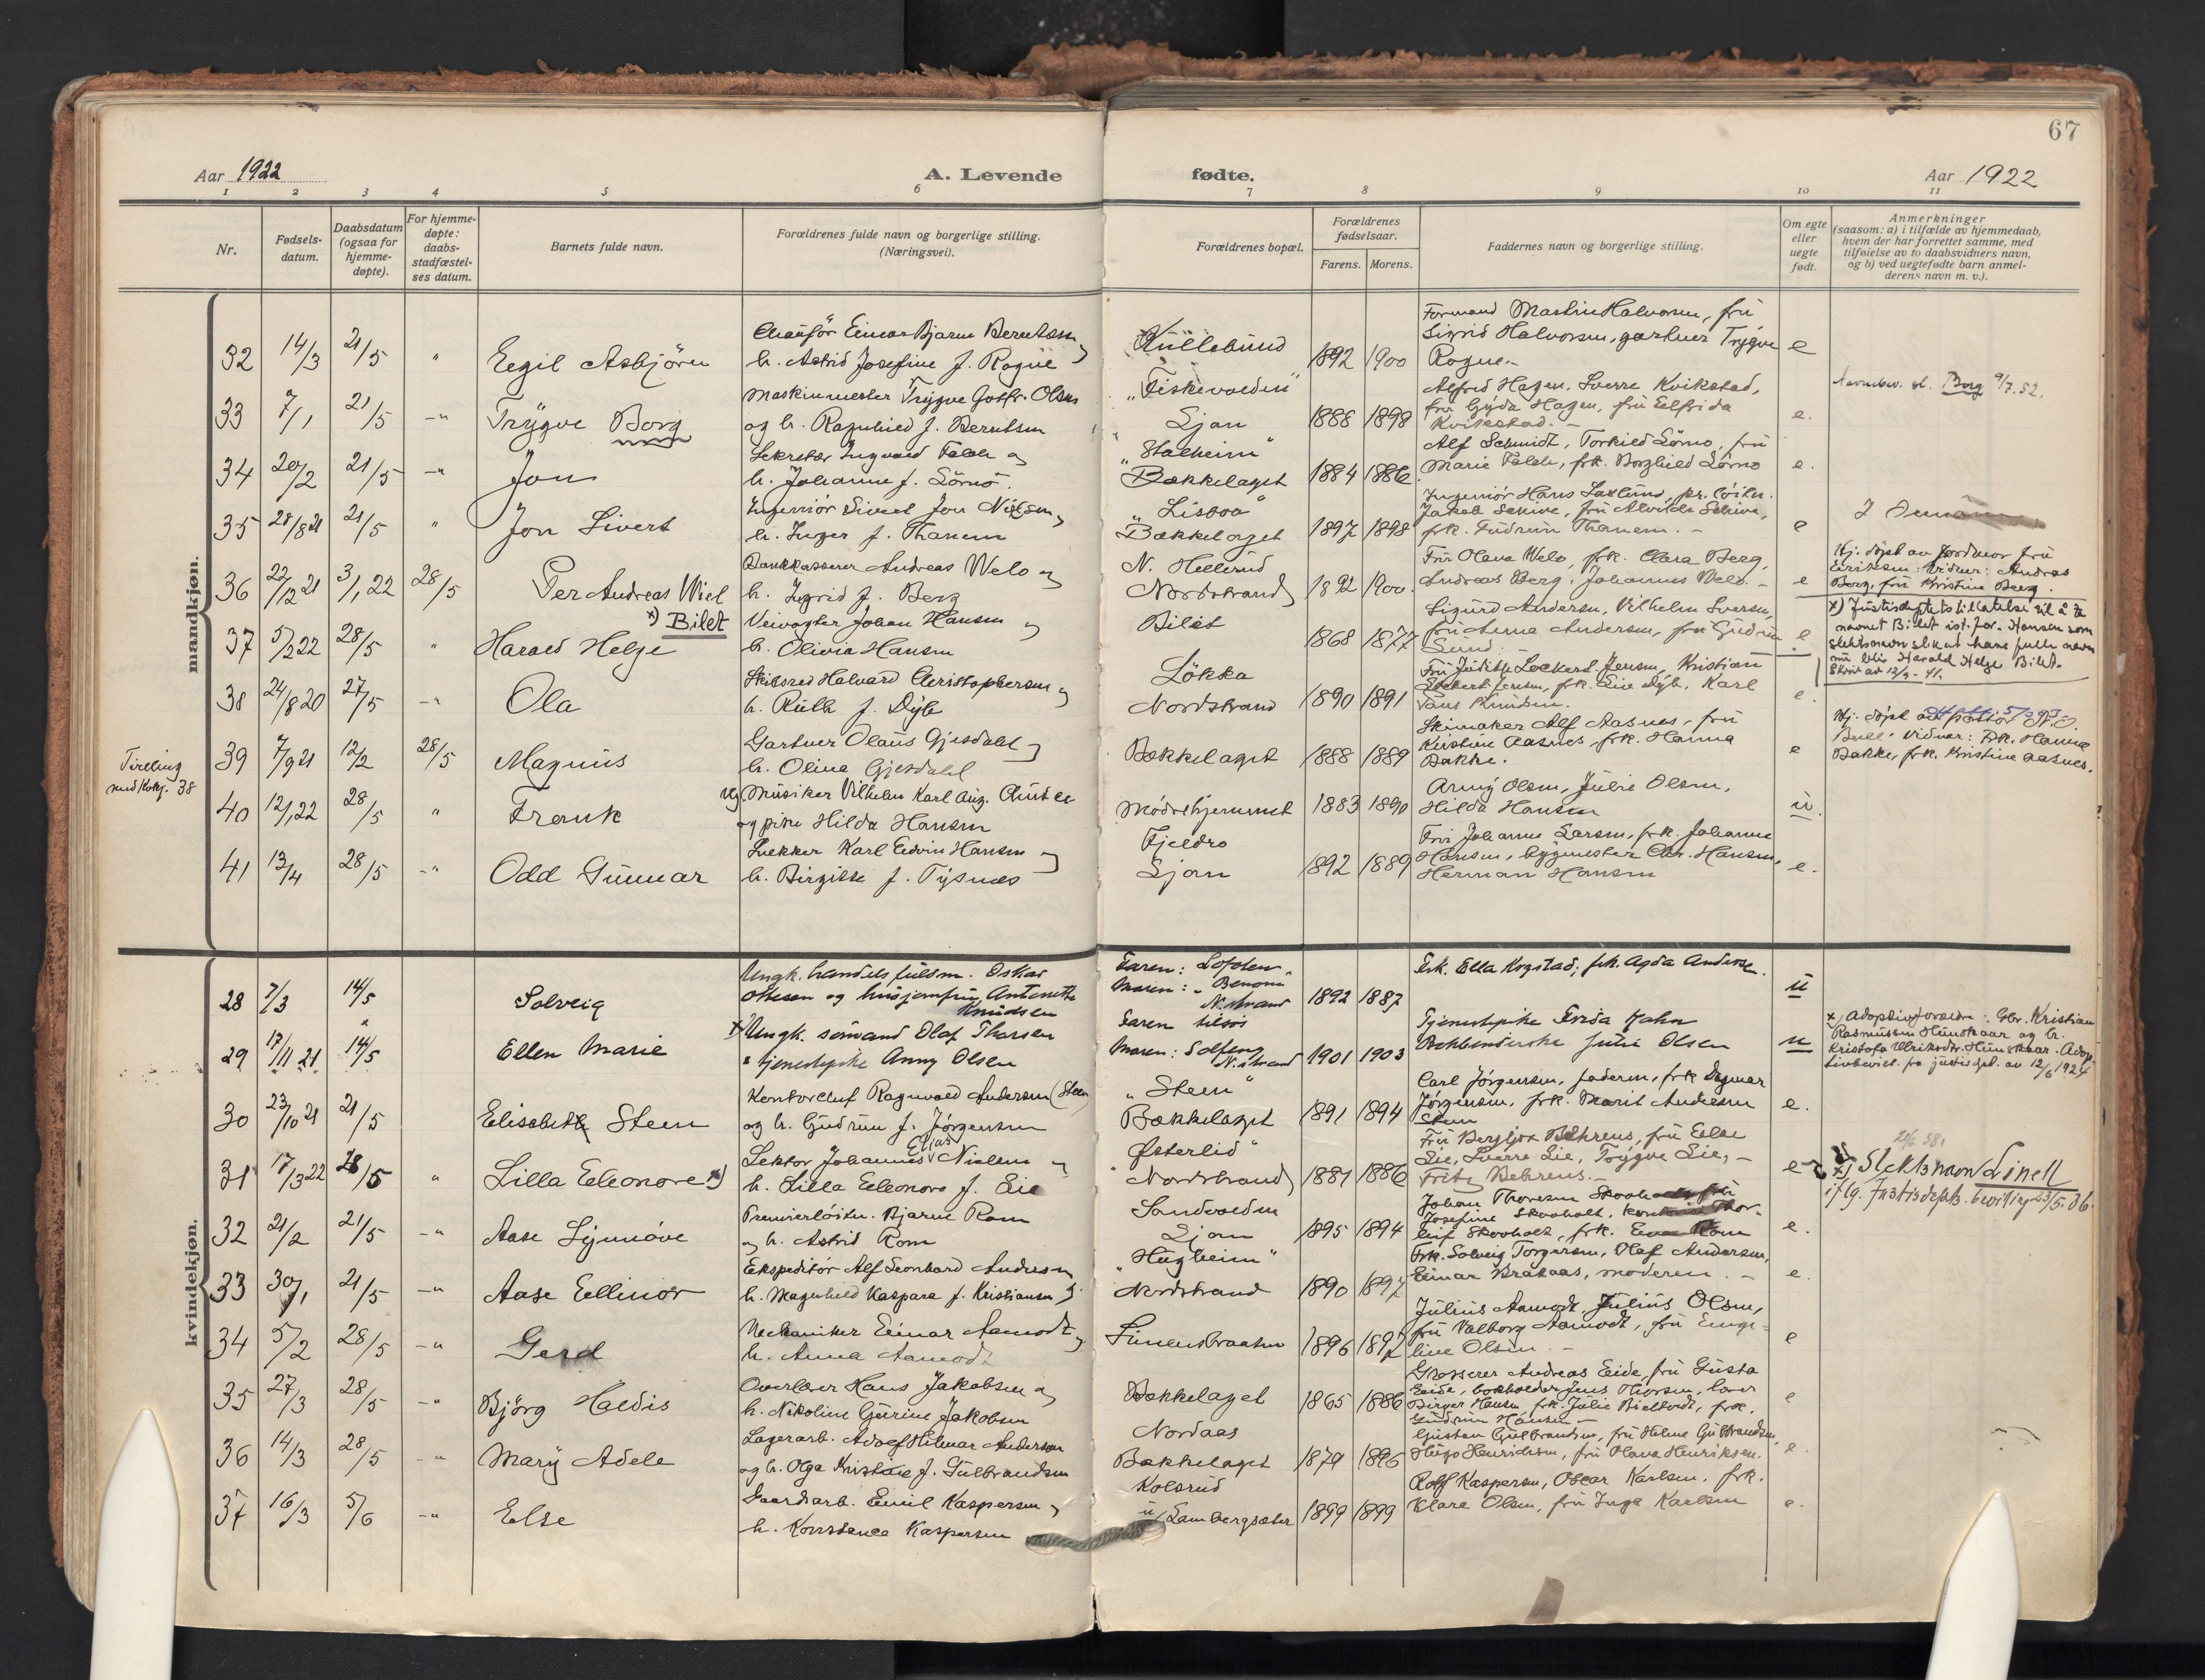 67
Aar 1922
A. Levende
fødte.
Aar 1922
1 2 3 4 5 6 7 8 9 10 11
Nr.
Fødsels-
datum.
Daabsdatum
(ogsaa for
hjemme-
døpte).
For hjemme-
døpte:
daabs-
stadfæstel-
ses datum.
Barnets fulde navn.
Forældrenes fulde navn og borgerlige stilling.
(Næringsvei).
Forældrenes bopæl.
Forældrenes
fødselsaar.
Farens. Morens.
Faddernes navn og borgerlige stilling.
Om egte
eller
uegte
født.
Anmerkninger
(saasom: a) i tilfælde av hjemmedaab,
hvem der har forrettet samme, med
tilføielse av to daabsvidners navn,
og b) ved uegtefødte barn anmel-
derens navn m. v.).
mandkjøn.
32 14/3 21/5 " Egil Asbjörn
Chauför Einar Bjarne Berntsen
h. Astrid Josefine f. Rogne
1892 1900
Formand Martin Halvorsen, fru
Sigrid Halvorsen, gartner Trygve
Rogne.-
e
33 7/1 21/5 -" Trygve Borg
Maskinmester Trygve Gotfr. Olsen
og h. Ragnhild f. Berntsen
"Fiskevolden"
Ljan
1888 1898
Alfred Hagen, Sverre Kvikstad,
fru Gyda Hagen, fru Elfrida
Kvikstad. -
e.
Borg 9/7.52.
34 20/2 21/5 -" Jon
Sekretær Ingvald Falch og
h. Johanne f. Sörnö.
"Stalheim"
Bækkelaget
1884 1886
Alf Schmidt, Torkild Sörnö, fru
Marie Falch, frk. Borghild Sörnö
e.
35 28/8 21 21/5 " Jon Sivert
Ingeniör Sivert Jon Nilsen
h. Inger f. Thanem
"Lisboa"
Bækkelaget
1897 1898
frk. Gudrun Thanem. -
e
36 22/12 21 3/1 22 28/5 Per Andreas Wiel
Bankkasserer Andreas Welo og
h. Ingrid f. Berg
N. Hellerud
Nordstrand
1892 1900.
Fru Olava Welo, frk. Clara Berg,
Andreas Berg, Johannes Welo. -
e
Hj. döpt av Jordmor fru
Eriksen. Vidner: Andreas
Berg, fru Kristine Berg.
37 5/2 22 28/5 " Harald Helge x) Bilet
Veivogter Johan Hansen og
h. Olivia Hansen
Bilet
1868 1877
Sigurd Andersen, Vilhelm Iversen,
fru Anna Andersen, fru Gudrun
Sund. -
e
x) Justisdeptets tillatelse til å ta
navnet Bilet ist. for Hansen som
slektsnavn slik at hans fulle navn
nu blir Harald Helge Bilet.
38 24/8 20 27/5 -" Ola
Skibsred Halvard Christophersen og
h. Ruth f. Dyb
Lökka
Nordstrand
1890 1891
Fru Judith Lockert Jensen, Kristian
Lockert Jensen, frk. Lie Dyb, Karl
e.
39 7/9 21 12/2 28/5 Magnus
Gartner Olaus Gjesdahl
h. Olina Gjesdahl
Bækkelaget
1888 1889
Skimaker Alf Aasnes, fru
Kristine Aasnes, frk. Hanna
Bakke.
e
Vidner: Frk. Hanna
Bakke, frk. Kristine Aasnes.
Tvilling
40 12/1 22 28/5 " Frank
Musiker Vilhelm Karl Aug.
og pike Hilda Hansen
Mödrehjemmet
1883 1890
Arny Olsen, Julie Olsen,
Hilda Hansen
u.
41 13/4 28/5 -" Odd Gunnar
Snekker Karl Edvin Hansen
h. Birgitte f. Tysnes
Fjeldro
Ljan
1892 1889
Fru Johanne Larsen, frk. Johanne
Hansen, bygmester Chr. Hansen,
Herman Hansen
e.
kvindekjøn.
28 7/3 14/5 Solveig
Ungk. handelsfuldm. Oskar
Olsen og husjomfru Antonette
Knudsen
Faren: Lofoten
Moren: "Benoni"
N.strand
1892 1887
Frk. Ella Krogstad, frk. Agda Andersen.
u
29 17/11 21 14/5 Ellen Marie
x) Ungk. sömand Olaf Thorsen
" tjenestepike Anny Olsen
Faren tilsös
Moren: Solfeng
N.strand
1901 1903
Tjenestepike Frida Hahn
Bokbinderske Julie Olsen
u
x) Adoptivforældre: Gbr. Kristian
Rasmussen Hunskaar og h.
Kristofa Ulriksdtr. Hunskaar. Adop-
tivbevill. fra justisdpt. av 12/6 1924
30 23/10 21 21/5 Elisabeth Steen
Kontorchef Ragnvald Andersen (Steen)
og h. Gudrun f. Jörgensen
"Steen"
Bækkelaget
1891 1894
Carl Jörgensen, faderen, frk Dagmar
Jörgensen, frk. Marit Andersen
Steen
e.
31 17/3 22 28/5 " Lilla Eleonore x)
Lektor Johannes Elias Nielsen og
h. Lilla Eleonore f. Lie
"Østerlid"
Nordstrand
1881 1886
Fru Bergljot Behrens, fru Else
Lie, Sverre Lie, Trygve Lie, -
Fritz Behrens. -
e
x) Slektsnavn Linell
iflg. Justisdepts. bevilling 23/5.36.
32 21/2 21/5 -" Aase Synnöve
Premierlöitn. Bjarne Rom
og h. Astrid Rom
Sandvolden
Ljan
1895 1894
Johan Thoresen Skovholt, fru
Josefine Skovholt, Thor-
leif Skovholt, frk. Eva Rom
e.
33 30/1 21/5 -" Aase Ellinor
Ekspeditör Alf Leonhard Andresen
h. Magnhild Kaspara f. Kristiansen
"Haugheim"
Nordstrand
1890 1897
Frk. Solveig Torgersen, Olaf Andersen,
Einar Brakaas, moderen. -
e.
34 5/2 28/5 -" Gerd
Mekaniker Einar Aamodt og
h. Anna Aamodt
Simensbraaten
1896 1897
Julius Aamodt, Julius Olsen,
fru Valborg Aamodt, fru Enge-
line Olsen. -
e
35 27/3 28/5 -" Björg Haldis
Overlærer Hans Jakobsen og
h. Nikoline Gurine Jakobsen
Bækkelaget
1865 1886
Grosserer Andreas Eide, fru Gusta
Eide, bokholder Jens Thorsen,
Birger Hansen, frk. Julie Bieltvedt, frk.
Gudrun Hansen -
e
36 14/3 28/5 -" Mary Adele
Lagerarb. Adolf Hilmar Andersen
og h. Olga Kristine f. Gulbrandsen
Nordaas
Bækkelaget
1879 1896
Gustav Gulbrandsen, fru Helene Gulbrandsen,
Hugo Henriksen, fru Olava Henriksen.
e.
37 16/3 5/6 -" Else
Gaardsarb. Emil Kaspersen og
h. Konstance Kaspersen
Kolsrud
u/ Lambergsæter
1899 1899
Rolf Kaspersen, Oscar Karlsen, frk.
Klara Olsen, fru Inga Karlsen
e.